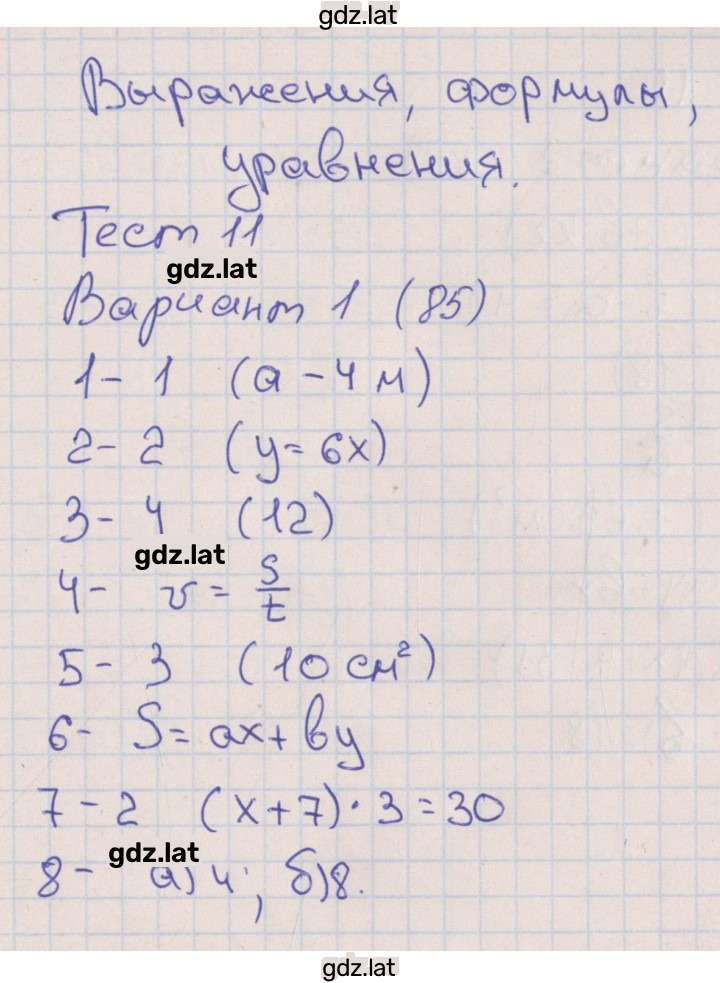 gdz.lat
Выражения, формулы,
уравнения.
Тест 11
gdz.lat
Вариант 1 (85)
1- 1 (а - 4 м)
2- 2 (y= 6x)
3- 4 (12)
gdz.lat
4- v = S/t
5- 3 (10 см²)
6- S= ax+ by
7- 2 (x+7)·3=30
gdz.lat
8- а) 4; б)8.
gdz.lat